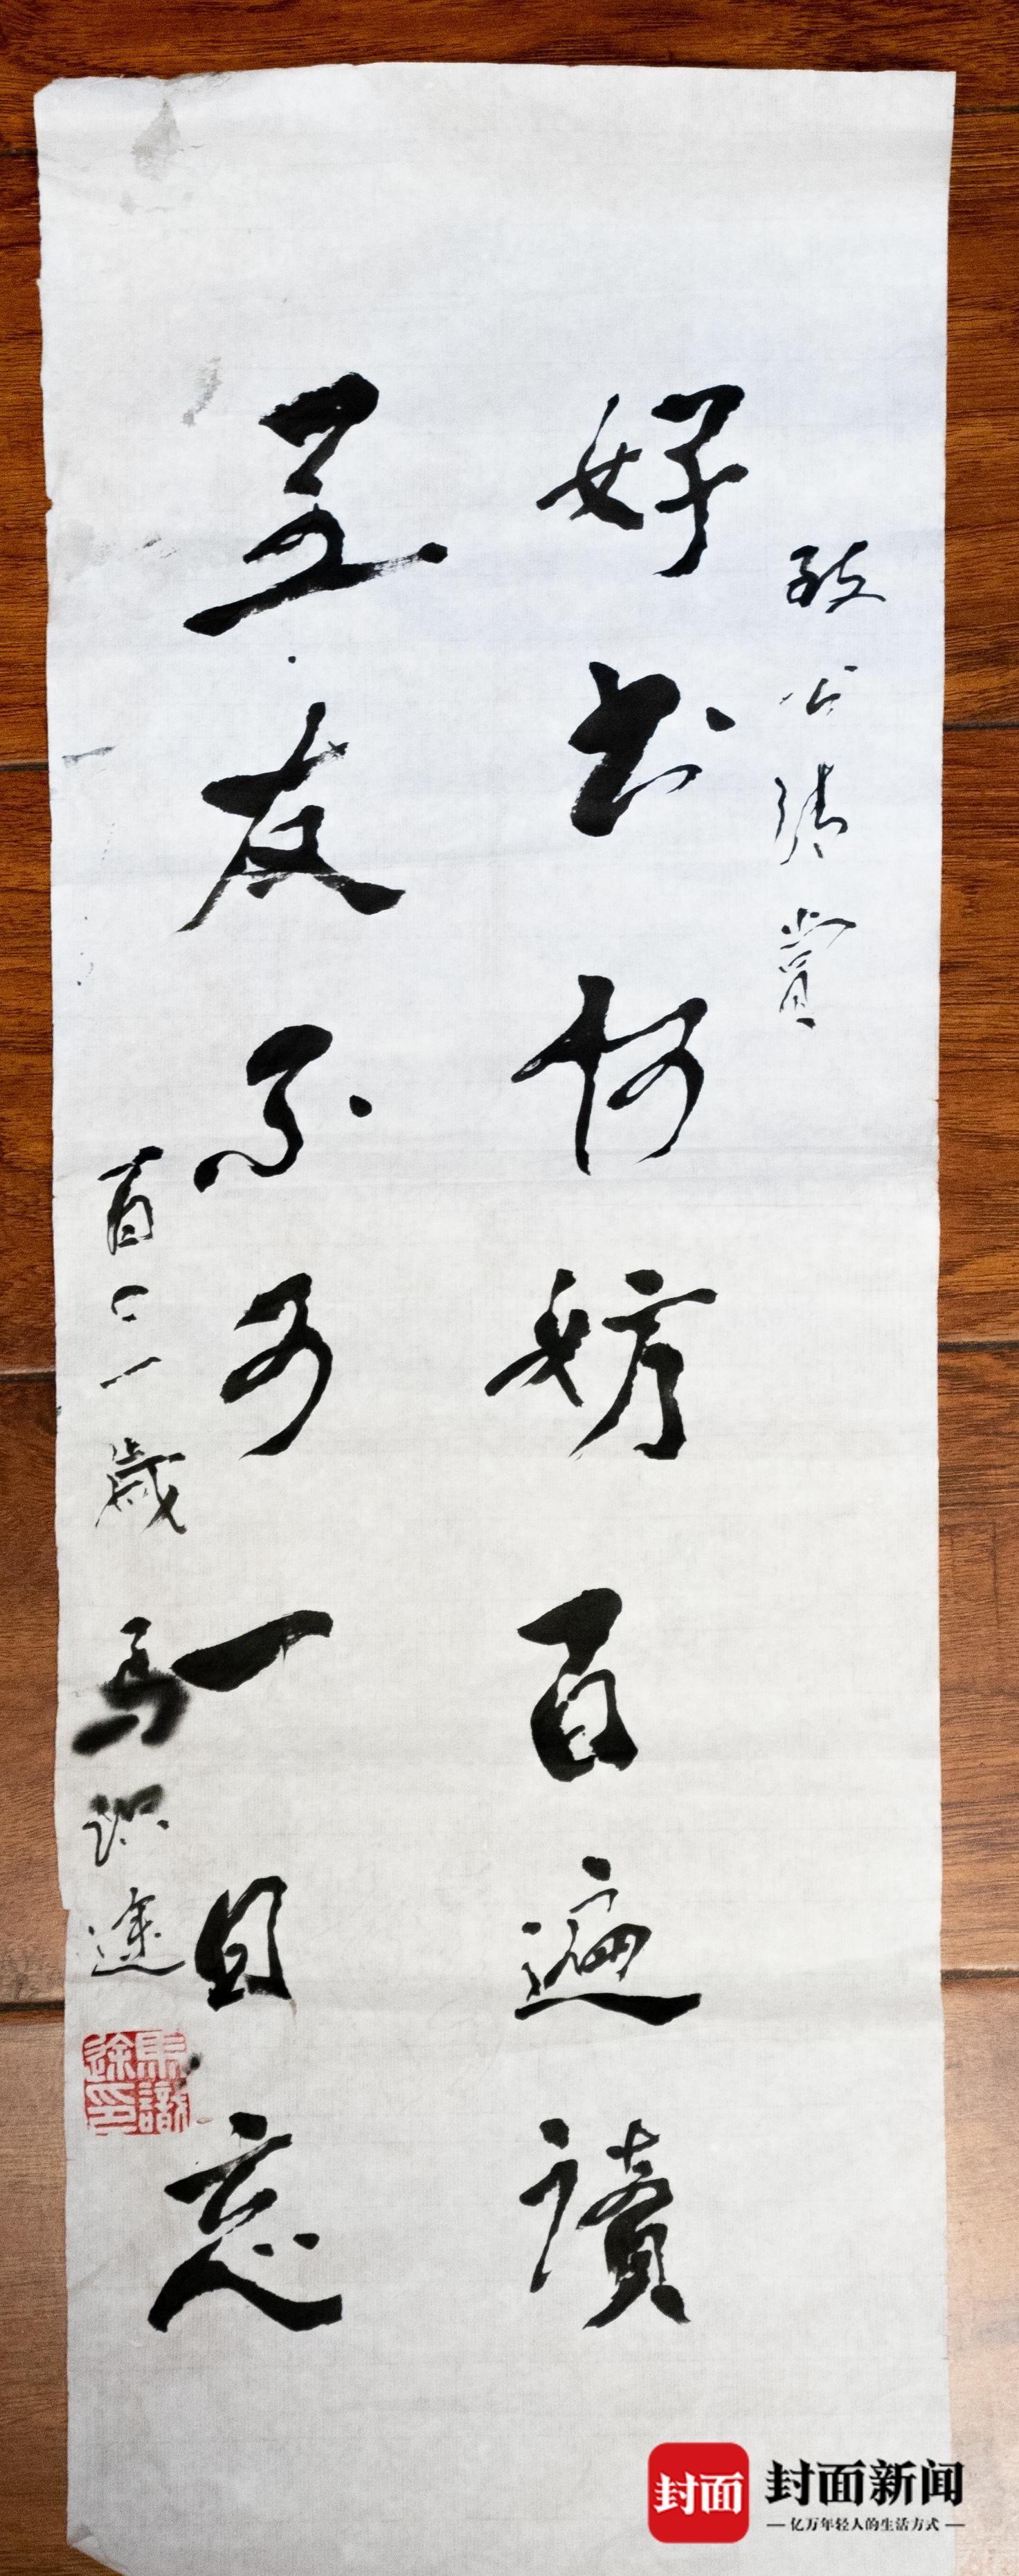 公清賞
好书何妨百遍讀
至友不可一日忘
百〇一歲 马识途
馬識途印
封面
封面新闻
亿万年轻人的生活方式